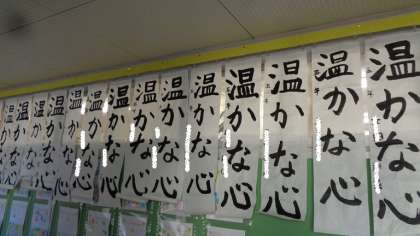 温かな心
温かな心
温かな心
温かな心
温かな心
温かな心
温かな心
温かな心
温かな心
温かな心
温かな心
温かな心
温かな心
温かな心